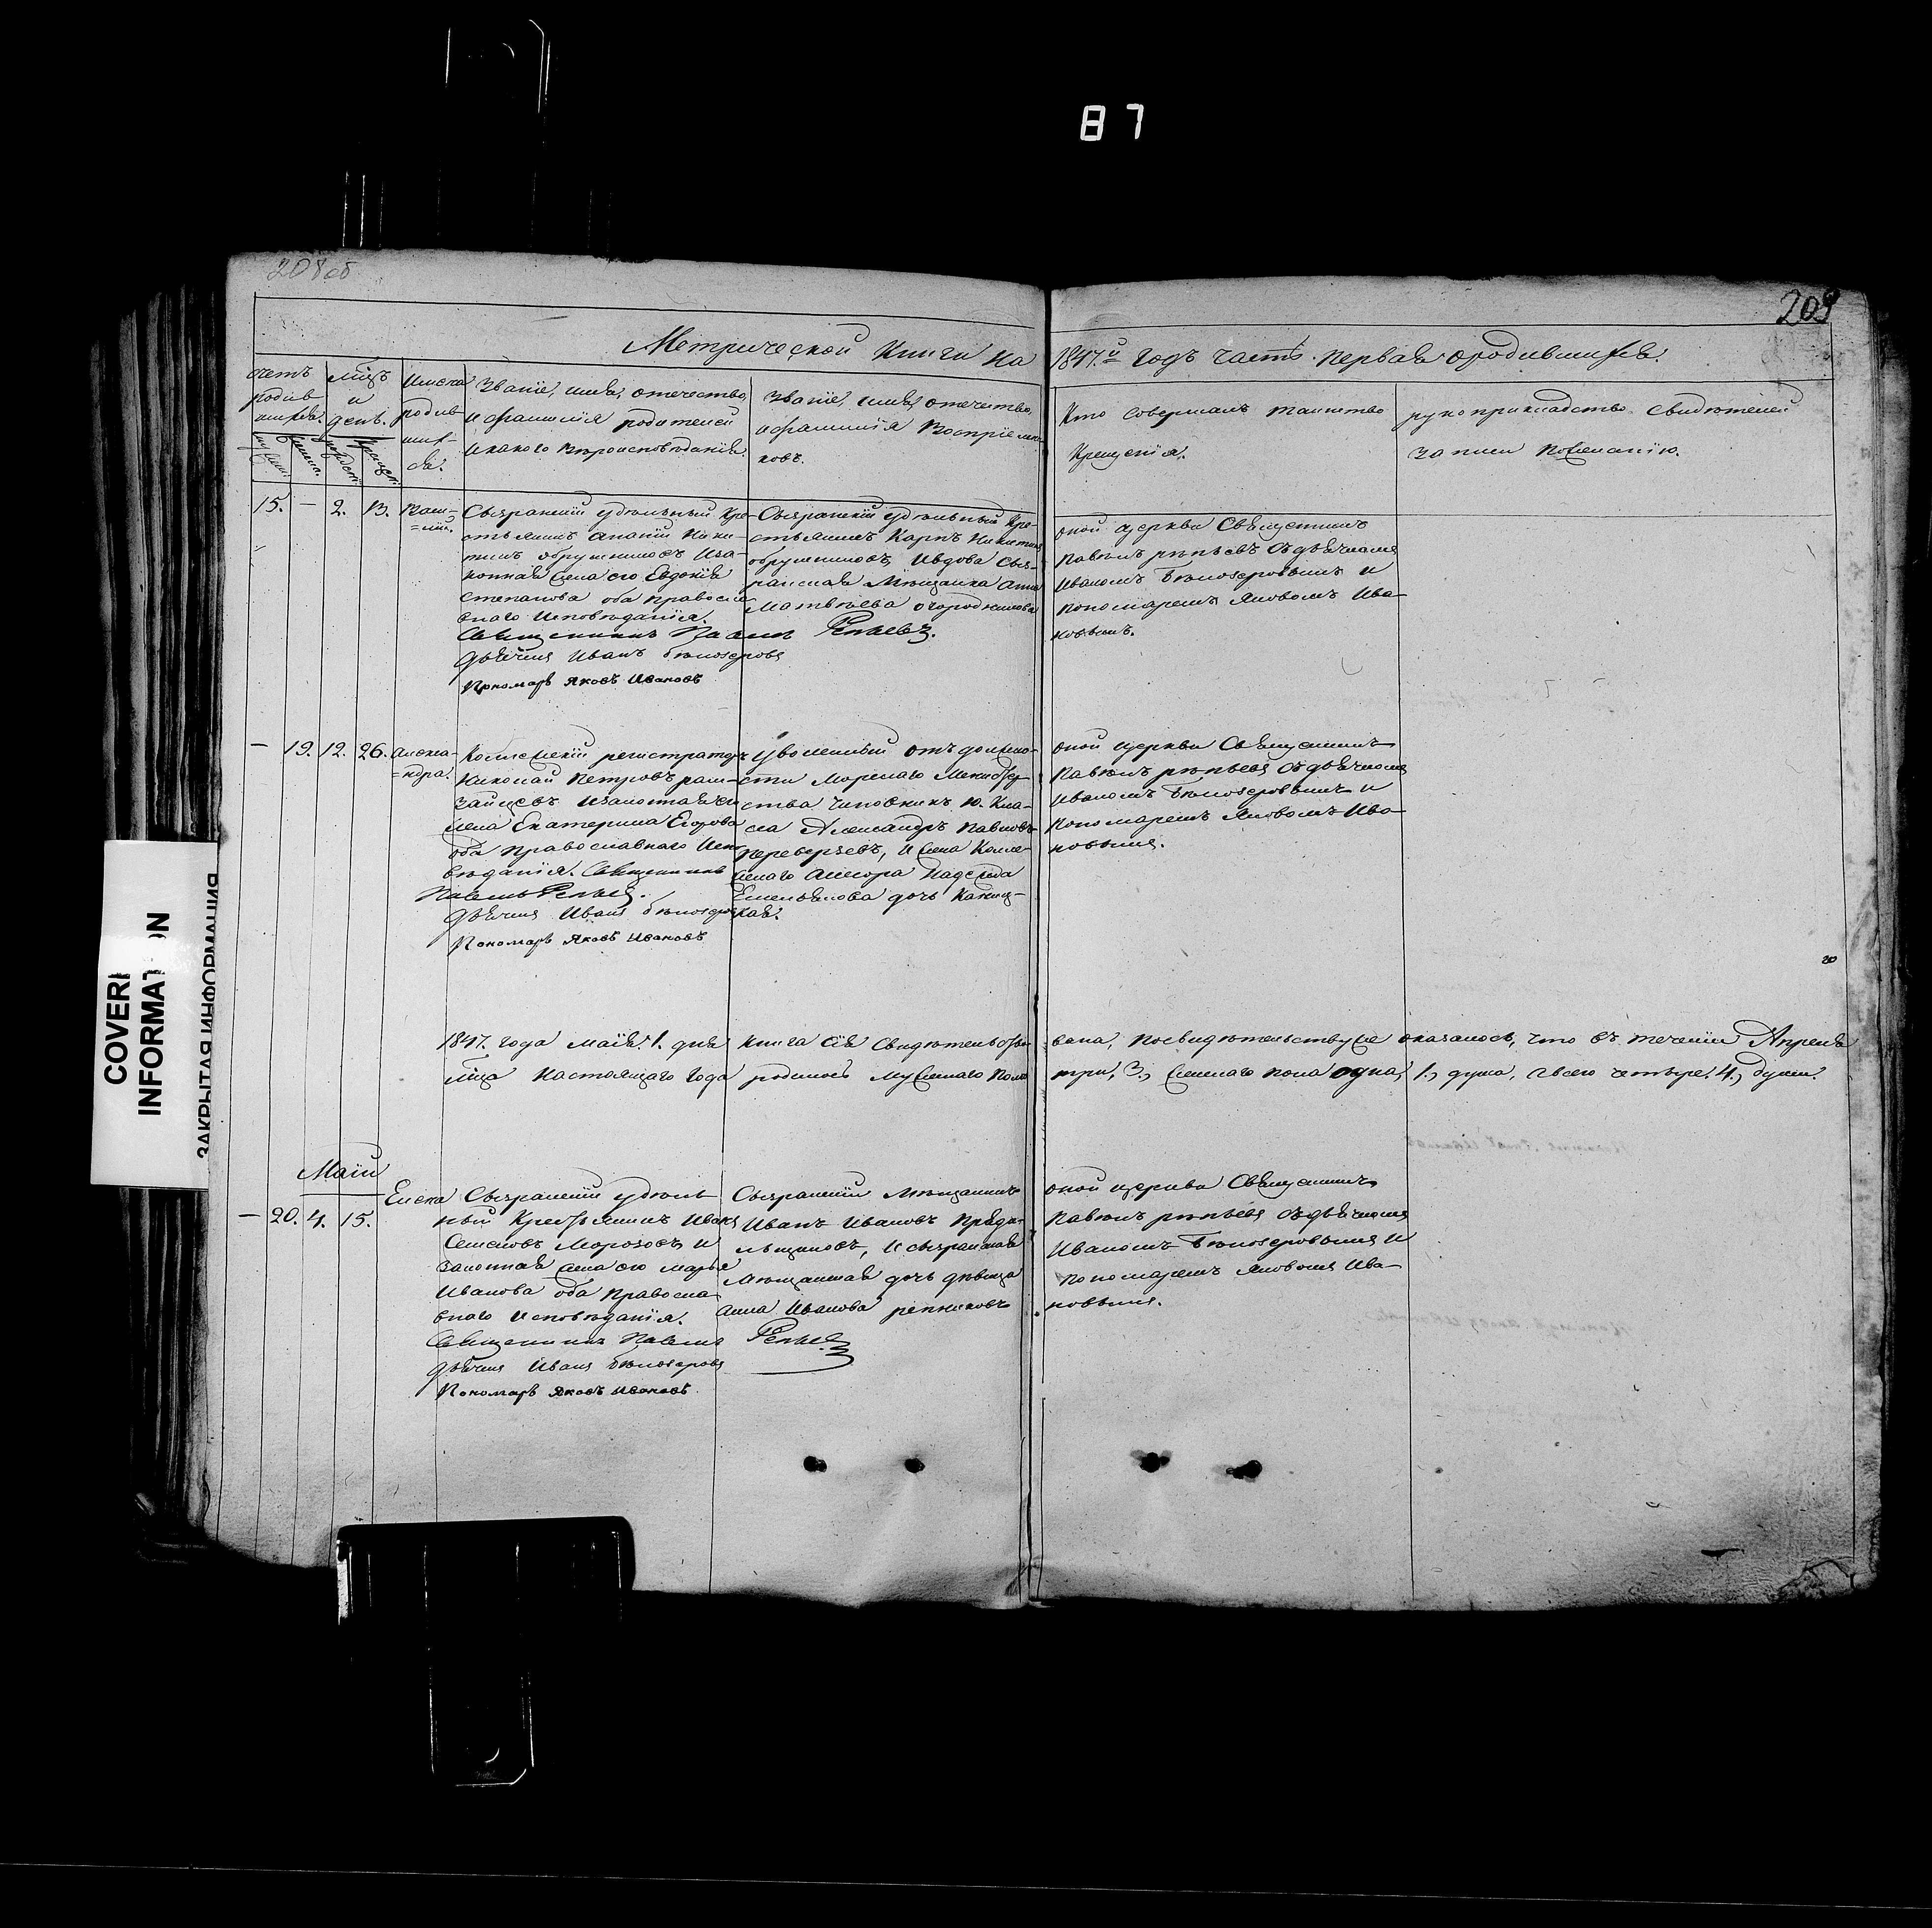 87
208 об
209
Метрической Книги на 1847.й годъ часть первая о родившихся.
счетъ родив шихся.
мцъ и день.
Имена родив ших- ся.
Званіе, имя, отечество,
и фамилія родителей
и какого вѣроисповѣданія.
Званіе, имя, отечество,
и фамилія Воспріемни-
ковъ.
Кто совершалъ таинство
Крещенія.
рукоприкладство свидѣтелей
записи по желанію.
15. — 2. 13.
Васи-
=лій.
Сызранскій удѣльный Кре-
стьянинъ Ананій Ники-
тинъ Обрушниковъ и за-
конная жена его Евдокія
Степанова оба православ
наго исповѣданія.
Священникъ Павелъ Репьевъ.
дьячекъ Иванъ Бѣлозеровъ
Пономарь Яковъ Ивановъ
Сызранскій удѣльный Кре-
стьянинъ Карпъ Никитинъ
Обрушниковъ, и вдова Сыз-
ранская Мѣщанка Анна
Матвѣева Огородникова
оной церкви Священникъ
Павелъ Рѣпьевъ съ дьячкомъ
Иваномъ Бѣлозеровымъ и
пономаремъ Яковомъ Ива-
новымъ.
— 19. 12. 26.
Алекса-
=ндра.
Коллежскій регистраторъ
Николай Петровъ
Зайцевъ и законная его
жена Екатерина Егорова
оба православнаго испо
вѣданія. Священникъ
Павелъ Репьевъ.
дьячекъ Иванъ Бѣлозеровъ
Пономарь Яковъ Ивановъ
Уволенный отъ должно-
сти Морскаго
ства чиновникъ 10. Кла-
са Александръ Павловъ
Переверзевъ, и жена Колле-
жскаго Асесора Надежда
Емельянова дочь
кая.
оной церкви Священникъ
Павелъ Рѣпьевъ съ дьячкомъ
Иваномъ Бѣлозеровымъ и
Пономаремъ Яковомъ Ива-
новымъ.
1847. года Маія. 1. дня Книга сія свидѣтельство вана, по свидѣтельству же оказалось, что въ теченіи Апреля
мца настоящаго года родилось мужескаго пола три, 3., женскаго пола одна, 1., душа, а всего четыре. 4., души.
Маій
— 20. 4. 15.
Елена
Сызранскій удѣль-
ный Крестьянинъ Иванъ
Семеновъ Морозовъ и
законная жена его Марья
Иванова оба Правосла-
внаго исповѣданія.
Священникъ Павелъ Репьевъ
дьячекъ Иванъ Бѣлозеровъ
Пономарь Яковъ Ивановъ
Сызранскій Мѣщанинъ
Иванъ Ивановъ
и сызранская
Мѣщанская дочь дѣвица
Анна Иванова
оной церкви Священникъ
Павелъ Рѣпьевъ съ дьячкомъ
Иваномъ Бѣлозеровымъ и
пономаремъ Яковомъ Ива-
новымъ.
COVERI
INFORMAT ON
ЗАКРЫТАЯ ИНФОРМАЦИЯ